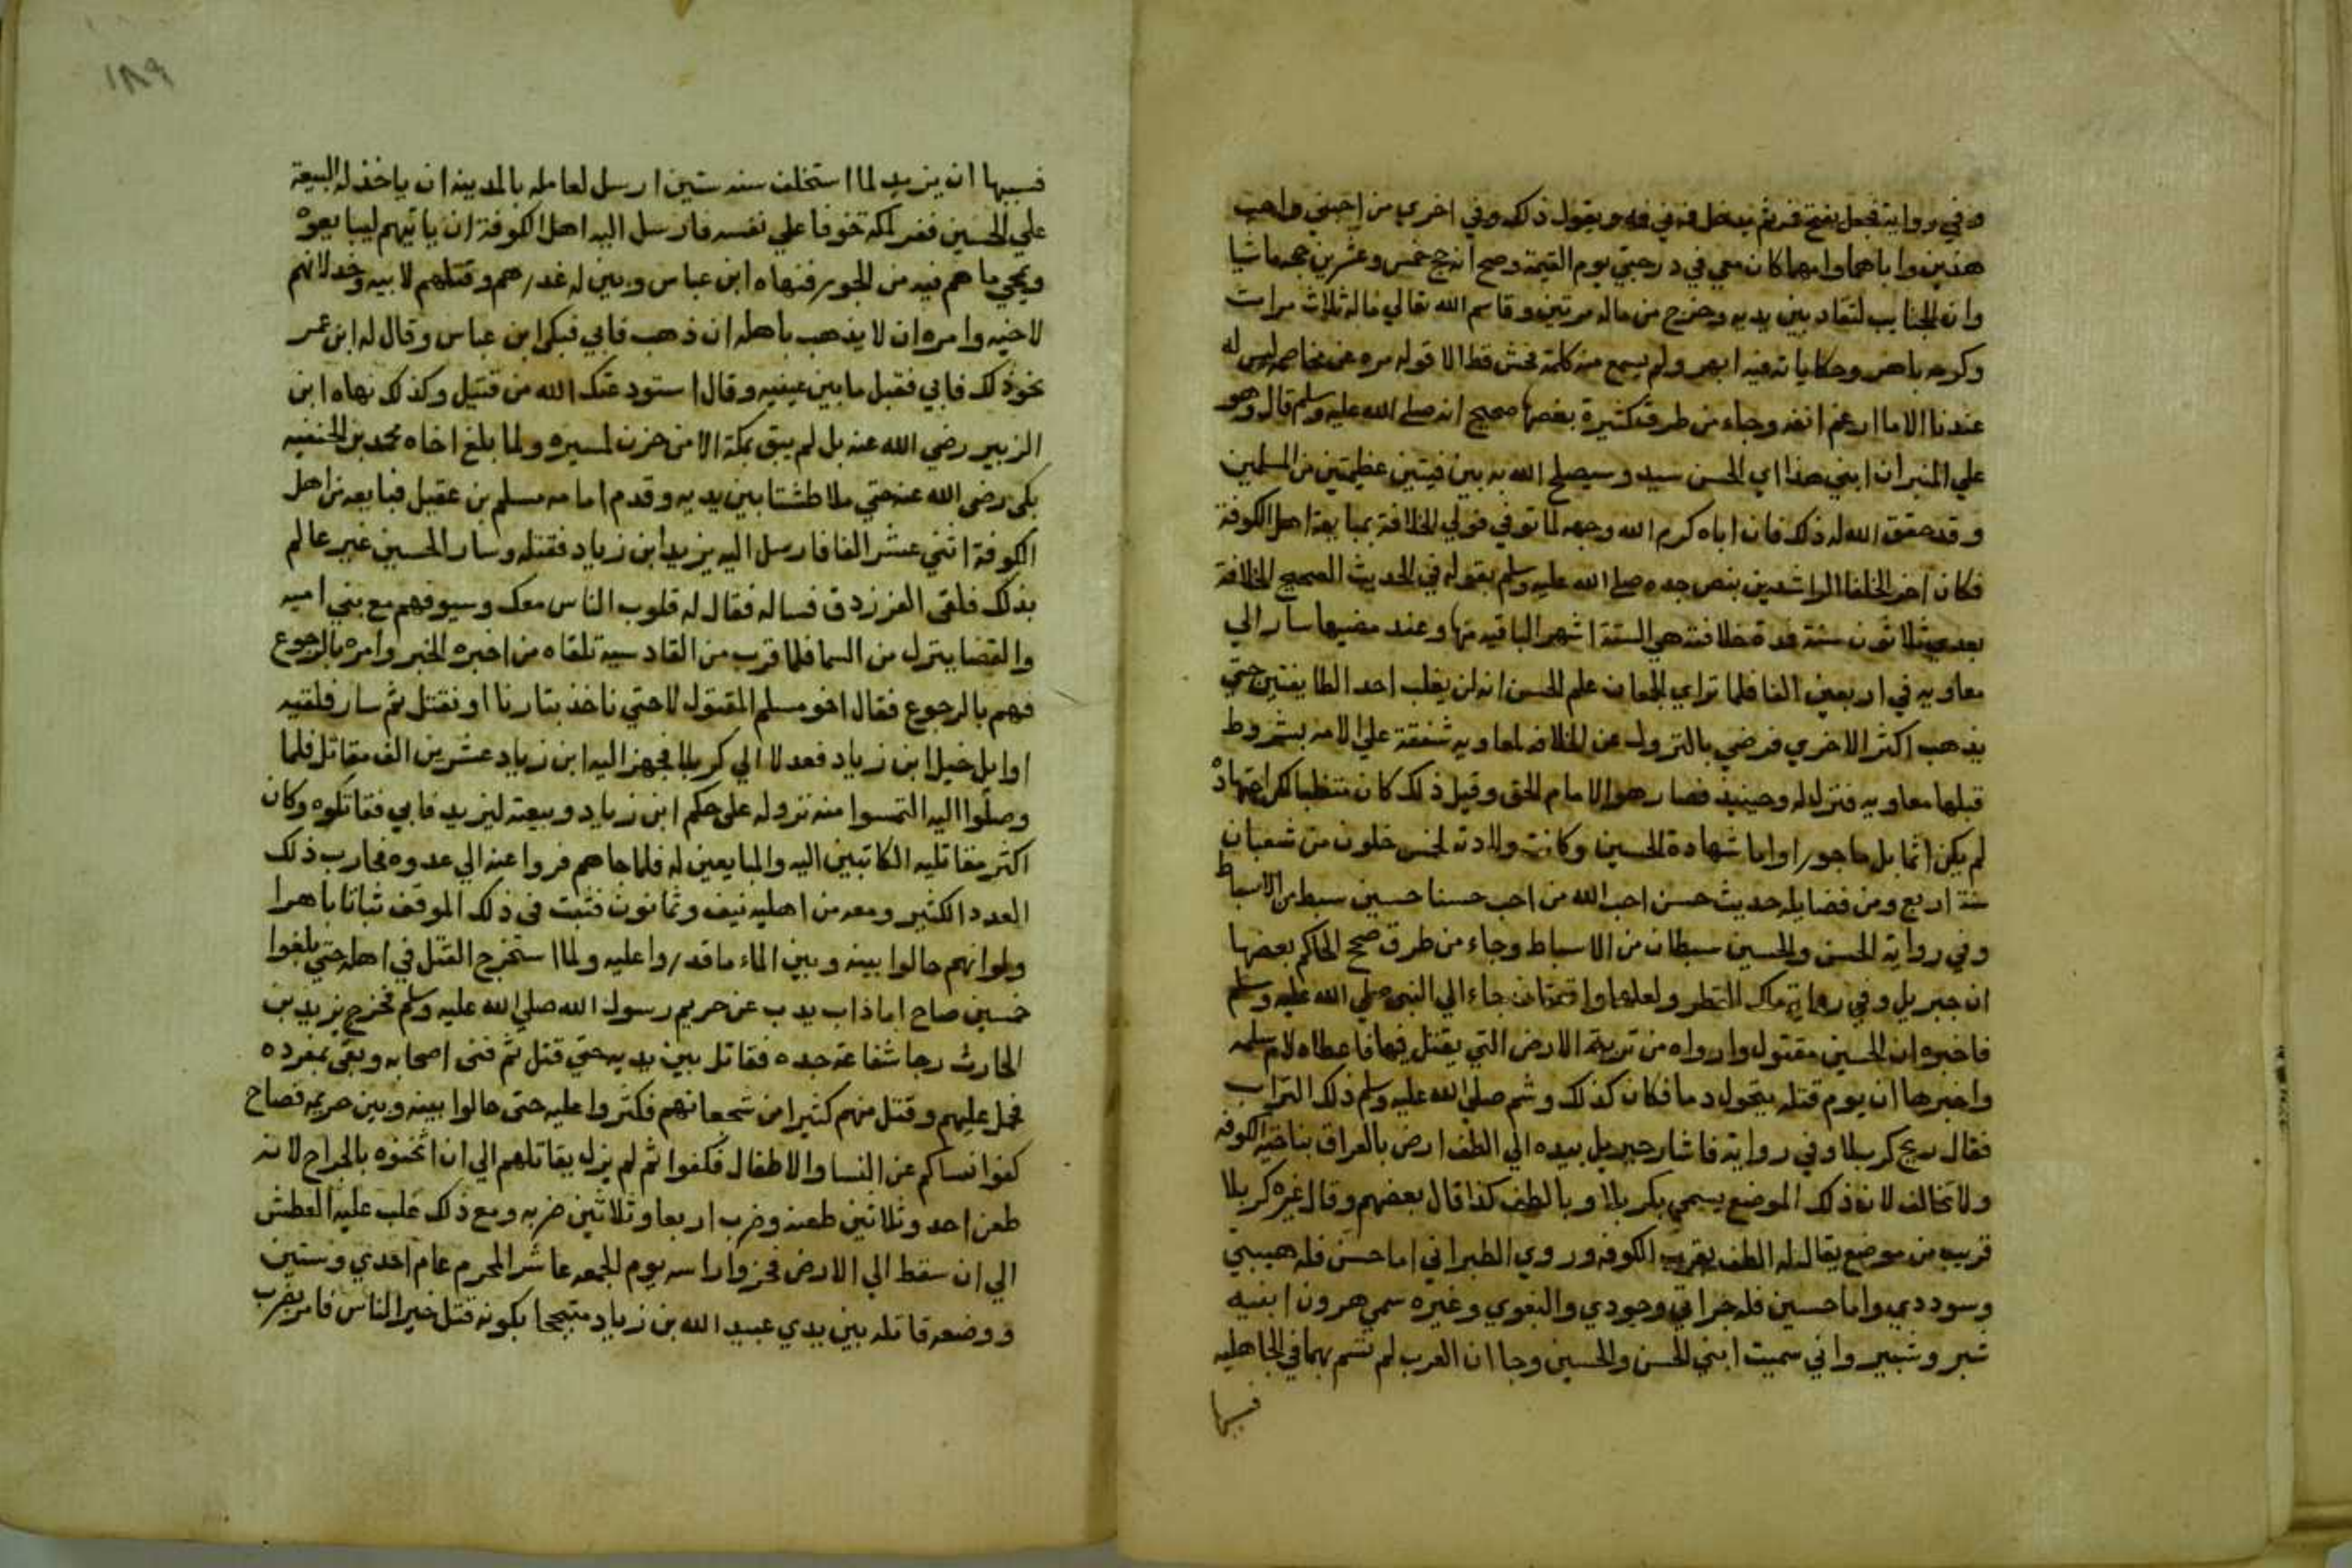 وفي رواية فجعل يفتح فمه ثم يدخل فمه في فمه ويقول ذلك وفي اخري من احبني واحب
هذين واباهما وامهما كان معي في درجتي يوم القيمة وصح انه حج خمس وعشرين حجه ماشيا
وان الجنايب لتقاد بين يديه وخرج من ماله مرتين وقاسم الله تعالي ماله ثلاث مرات
وكرمه باهر وحكاياته فيه ابهر ولم يسمع منه كلمة فحش قط الا قوله مره عن مخاصم ليس له
عندنا الا ما ارغم انفه وجاء من طرق كثيرة بعضها صحيح انه صلى الله عليه وسلم قال وهو
علي المنبر ان ابني هذا اي الحسن سيد وسيصلح الله به بين فيتين عظيمتين من المسلمين
وقد حقق الله له ذلك فان اباه كرم الله وجهه لما توفي فولي الخلافة بمبايعة اهل الكوفة
فكان اخر الخلفا الراشدين بنص جده صلى الله عليه وسلم بقوله في الحديث الصحيح الخلافة
بعدي ثلاثون سنة فمدة خلافته هي الستة اشهر الباقيه منها وعند مضيها سار الي
معاويه في اربعين الفا فلما تراي الجمعان علم الحسن انه لن يغلب احد الطايفتين حتي
يذهب اكثر الاخري فرضي بالنزول عن الخلافه لمعاويه شفقة علي الامه بشروط
قبلها معاويه فنزل له وحينيذ فصار هو الامام الحق وقبل ذلك كان متغلبا لكن باجتهاد
لم يكن اثما بل ماجورا واما شهادة الحسين وكانت ولادته لخمس خلون من شعبان
سنة اربع ومن فضايله حديث حسن احب الله من احب حسنا حسين سبط من الاسباط
وفي رواية الحسن والحسين سبطان من الاسباط وجاء من طرق صحح الحاكم بعضها
ان جبريل وفي رواية ملك المطر ولعلهما واقعتان جاء الي النبي صلي الله عليه وسلم
فاخبره ان الحسين مقتول واراه من تربة الارض التي يقتل فيها فاعطاه لام سلمه
واخبرها ان يوم قتله يتحول دما فكان كذلك وشم صلي الله عليه وسلم ذلك التراب
فقال ريح كربلا وفي رواية فاشار جبريل بيده الي الطف ارض بالعراق بناحية الكوفه
ولا تخالف لان ذلك الموضع يسمي بكربلا وبالطف كذا قال بعضهم وقال غيره كربلا
قريب من موضع يقال له الطف بقرب الكوفه وروي الطبراني اما حسن فله هيبتي
وسوددي واما حسين فله جراتي وجودي والبغوي وغيره سمي هرون ابنيه
شبر وشبير واني سميت ابني الحسن والحسين وجا ان العرب لم تسم بهما في الجاهليه
فسببها
١٨٩
فسببها ان يزيد لما استخلف سنه ستين ارسل لعامله بالمدينه ان ياخذ له البيعة
علي الحسين ففر لمكة خوفا علي نفسه فارسل اليه اهل الكوفة ان ياتيهم ليبايعوه
ويمحي ما هم فيه من الجور فنهاه ابن عباس وبين له غدرهم وقتلهم لابيه وخذلانهم
لاخيه وامره ان لا يذهب باهله ان ذهب فابي فبكى ابن عباس وقال له ابن عمر
نحو ذلك فابي فقبل ما بين عينيه وقال استودعتك الله من قتيل وكذلك نهاه ابن
الزبير رضي الله عنه بل لم يبق بمكة الا من حزن لمسيره ولما بلغ اخاه محمد بن الحنفيه
بكى رضى الله عنه حتي ملا طشتا بين يديه وقدم امامه مسلم بن عقيل فبايعه من اهل
الكوفة اثني عشر الفا فارسل اليه يزيد ابن زياد فقتله وسار الحسين غير عالم
بذلك فلقى الفرزدق فساله فقال له قلوب الناس معك وسيوفهم مع بني اميه
والقضا ينزل من السما فلما قرب من القادسية تلقاه من اخبره الخبر وامره بالرجوع
فهم بالرجوع فقال اخو مسلم المقتول لا حتي ناخذ بثارنا او نقتل ثم سار فلقيه
اوايل خيل ابن زياد فعدلا الي كربلا فجهز اليه ابن زياد عشرين الف مقاتل فلما
وصلوا اليه التمسوا منه نزوله على حكم ابن زياد وبيعته ليزيد فابي فقاتلوه وكان
اكثر مقاتليه الكاتبين اليه والمبايعين له فلما جاهم فروا عنه الي عدوه فحارب ذلك
العدد الكثير ومعه من اهليه نيف وثمانون فثبت فى ذلك الموقف ثباتا باهرا
ولو انهم حالوا بينه وبين الماء ما قدروا عليه ولما استحر القتل في اهله حتي بلغوا
خمسين صاح اما ذاب يذب عن حريم رسول الله صلي الله عليه وسلم فخرج يزيد بن
الحارث رجا شفاعة جده فقاتل بين يديه حتي قتل ثم فنى اصحابه وبقى بمفرده
فحمل عليهم وقتل منهم كثيرا من شجعانهم فكثروا عليه حتى حالوا بينه وبين حريمه فصاح
كفوا نساكم عن النسا والاطفال فكفوا ثم لم يزل يقاتلهم الي ان اثخنوه بالجراح لانه
طعن احد وثلاثين طعنه وضرب اربعا وثلاثين ضربه ومع ذلك غلب عليه العطش
الي ان سقط الي الارض فحزوا راسه يوم الجمعه عاشر المحرم عام احدي وستين
ووضعه قاتله بين يدي عبيد الله بن زياد متبجحا بكونه قتل خير الناس فامر بضرب